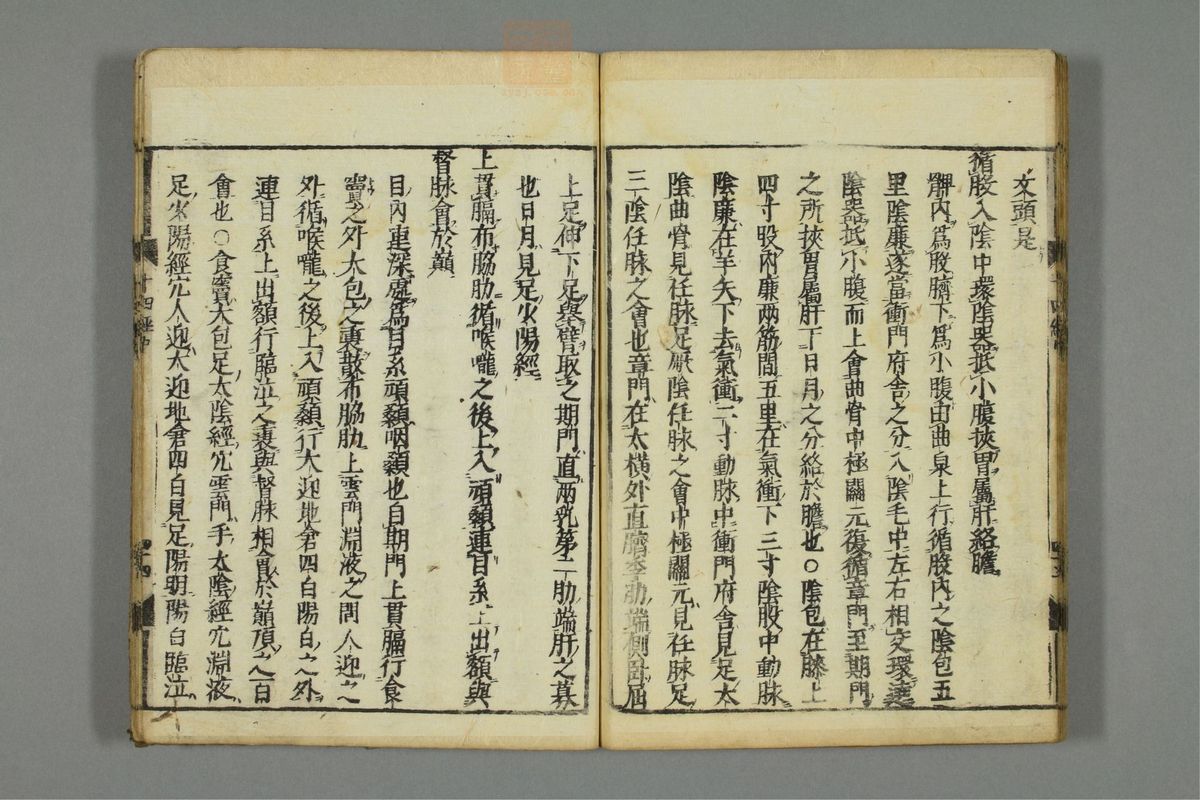 文頭是
循股入陰中環陰器抵小腹挾胃屬肝絡膽
髀內爲股臍下爲小腹由曲泉上行循股內之陰包五
里陰廉遂當衝門府舍之分入陰毛中左右相交環遶
陰器抵小腹而上會曲骨中極關元復循章門至期門
之所挾胃屬肝下日月之分絡於膽也○陰包在膝上
四寸股內廉兩筋間五里在氣衝下三寸陰股中動脉
陰廉在羊矢下去氣衝二寸動脉中衝門府舍見足太
陰曲骨見任脉足厥陰任脉之會中極關元見任脉足
三陰任脉之會也章門在太橫外直臍季肋端側臥屈
上足伸下足擧臂取之期門直兩乳第二肋端肝之募
也日月見足少陽經
上貫膈布脇肋循喉嚨之後上入頏顙連目系上出額與
督脉會於巓
目內連深處爲目系頏顙咽顙也自期門上貫膈行食
竇之外大包之裏散布脇肋上雲門淵液之間人迎之
外循喉嚨之後上入頏顙行大迎地倉四白陽白之外
連目系上出額行臨泣之裏與督脉相會於巓頂之百
會也○食竇大包足太陰經穴雲門手太陰經穴淵液
足少陽經穴人迎大迎地倉四白見足陽明陽白臨泣
十四經中